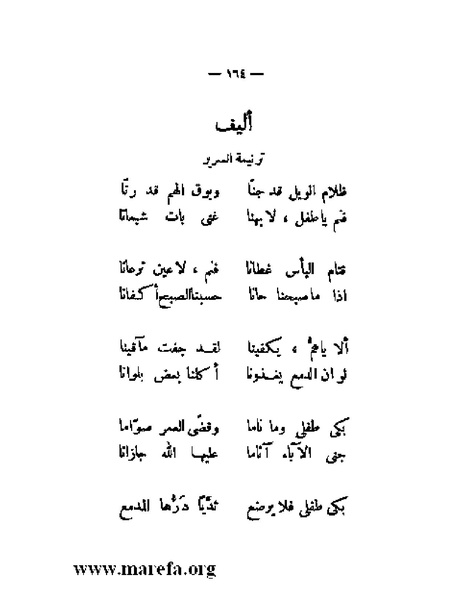 — ١٦٤ —
أليف
ترنيمة السرير
ظلام الويل قد جنّا وبوق الهم قد رنّا
فنم ياطفل ، لا يهنا غنى بات شبعانا
قتام اليأس غطانا فنم ، لاعين ترعانا
اذا ماصبحنا حانا حسبناالصبح أكفانا
ألا ياهمُّ ، يكفينا لقد جفت مآقينا
لو ان الدمع يغذونا أكلنا بعض بلوانا
بكى طفلى وما ناما وقضّى العمر صوّاما
جنى الآباء آثاما عليها الله جازانا
بكى طفلى فلا يرضع ثديًّا دَرُّها المدمع
www.marefa.org